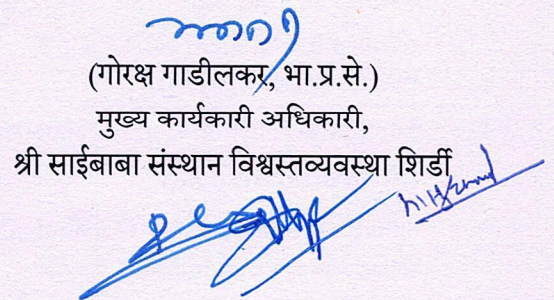 (गोरक्ष गाडीलकर, भा.प्र.से.)
मुख्य कार्यकारी अधिकारी,
श्री साईबाबा संस्थान विश्वस्तव्यवस्था शिर्डी